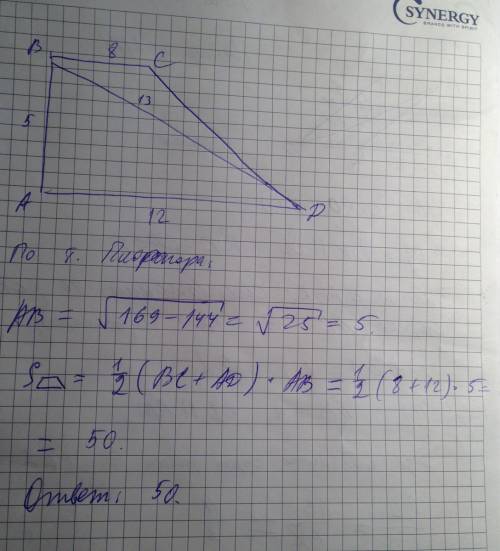 SYNERGY
B 8 C
13
5
A 12 D
По т. Пифагора:
AB = √169-144 = √25 = 5.
S = 1/2 (BC + AD) · AB = 1/2 (8+12) · 5 =
= 50.
Ответ: 50.